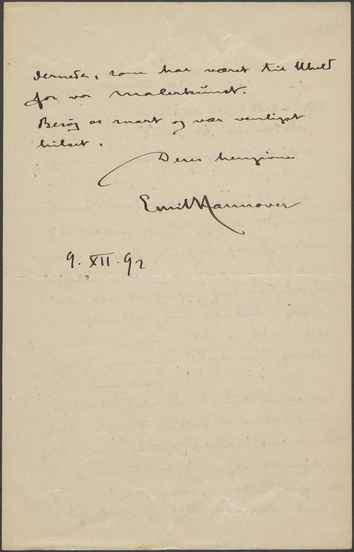 dernede, som har været til Uheld
for vor Malerkunst.
Besøg os snart og vær venligst
hilset.
Deres hengivne
Emil Hannover
9. XII. 92